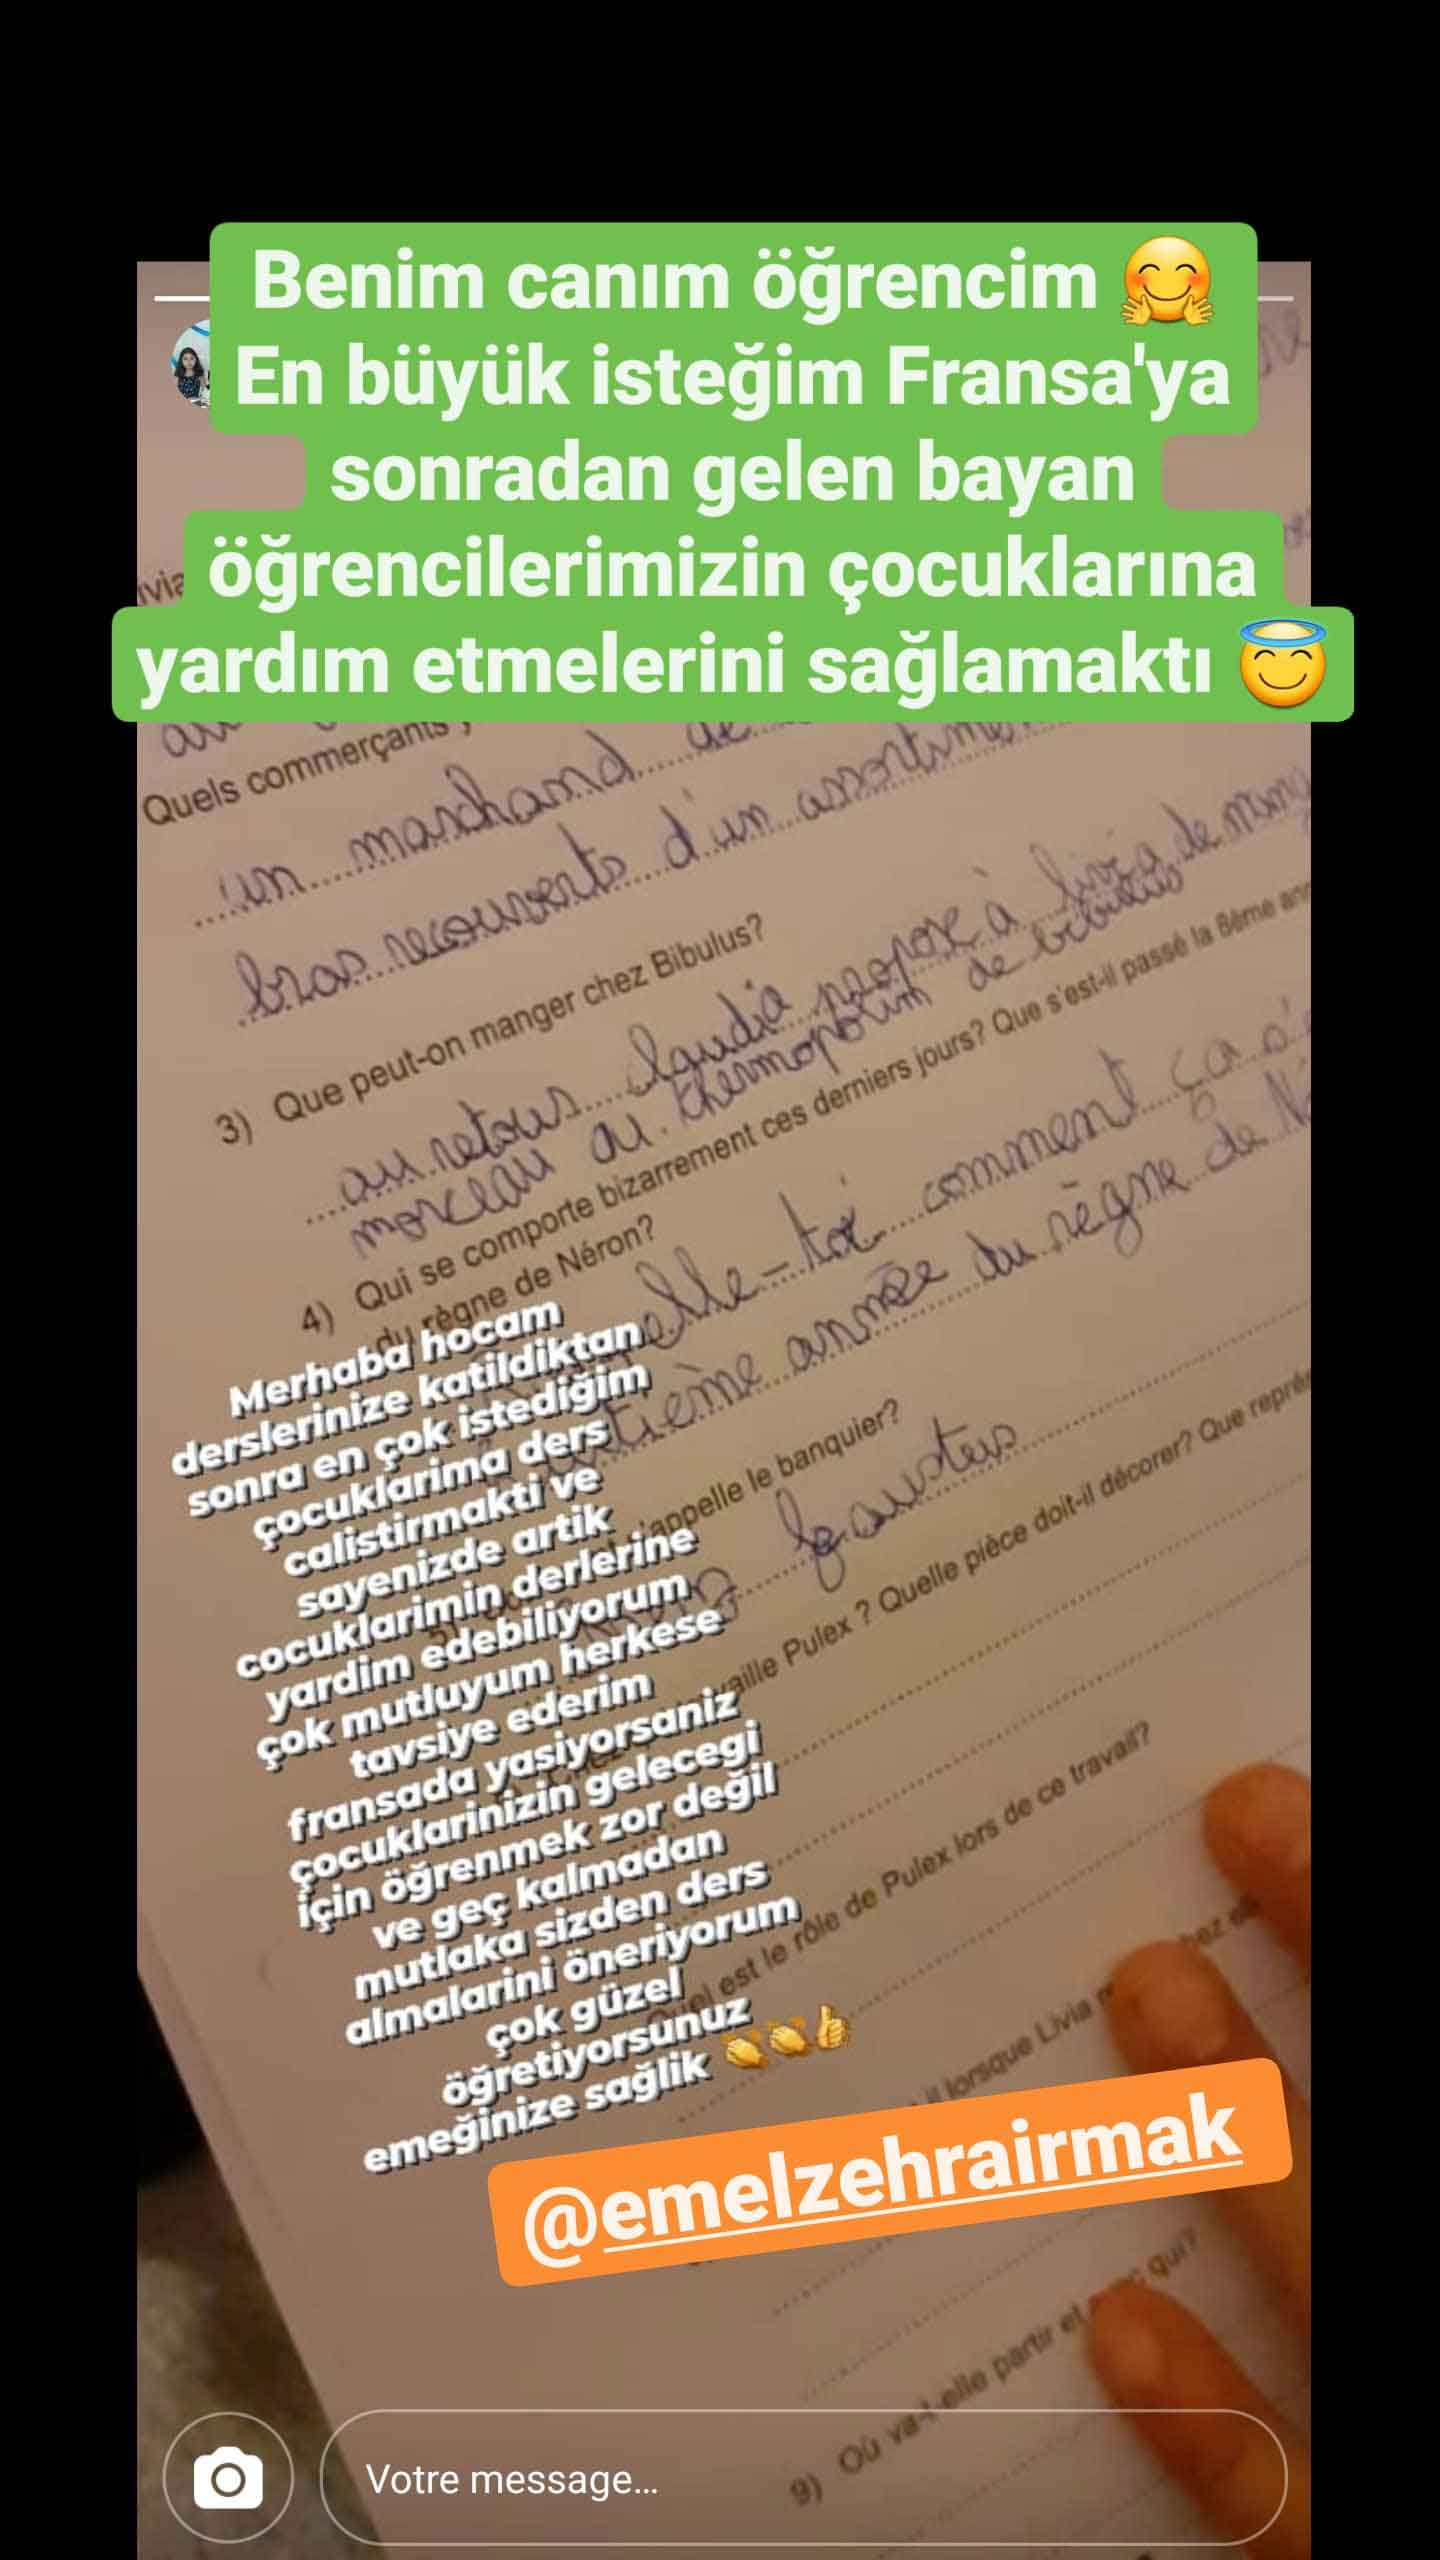 Benim canım öğrencim 🤗
En büyük isteğim Fransa'ya
sonradan gelen bayan
öğrencilerimizin çocuklarına
yardım etmelerini sağlamaktı 😇
Quels commerçants
un marchand de
bras recouverts d'un assortiment
3) Que peut-on manger chez Bibulus?
au retour claudia propose à livia de
morceau au thermopolim de bibulus
4) Qui se comporte bizarrement ces derniers jours? Que s'est-il passé la 8ème
du règne de Néron?
elle-toi comment ça
tième année du règne de
appelle le banquier?
faustus
vaille Pulex ? Quelle pièce doit-il décorer? Que
est le rôle de Pulex lors de ce travail?
il lorsque Livia
9) Où va-t-elle partir et avec qui?
Merhaba hocam
derslerinize katildiktan
sonra en çok istediğim
çocuklarima ders
calistirmakti ve
sayenizde artik
cocuklarimin derlerine
yardim edebiliyorum
çok mutluyum herkese
tavsiye ederim
fransada yasiyorsaniz
çocuklarinizin gelecegi
için öğrenmek zor değil
ve geç kalmadan
mutlaka sizden ders
almalarini öneriyorum
çok güzel
öğretiyorsunuz
emeğinize sağlik 👏👏👍
@emelzehrairmak
Votre message...